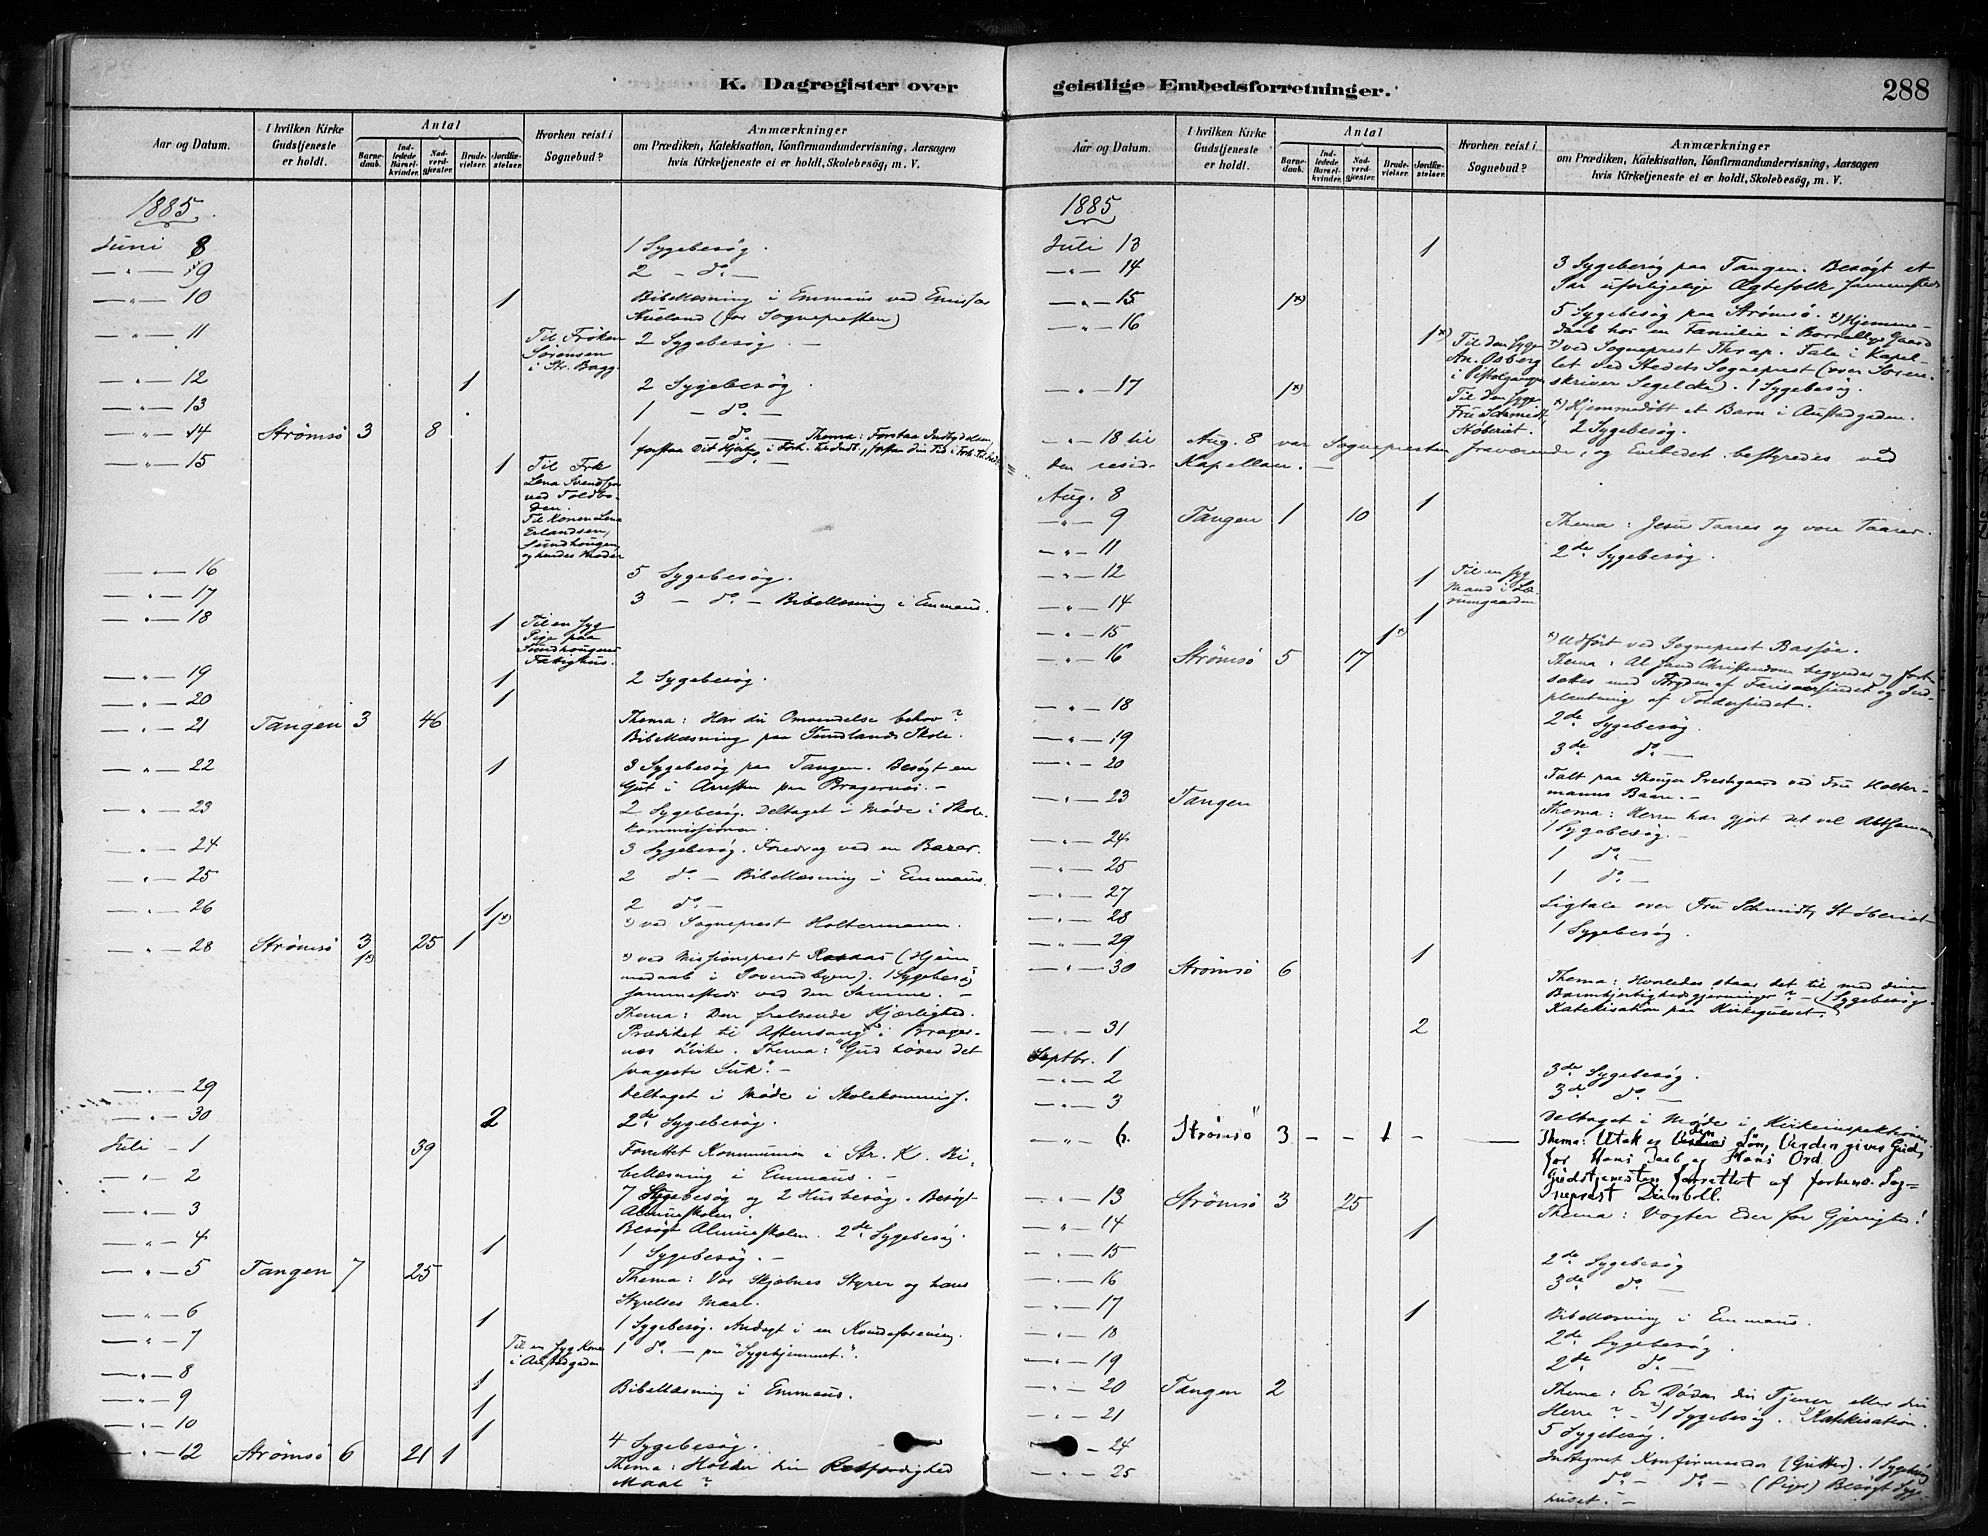 K. Dagregister over
Aar og Datum.
I hvilken Kirke Gudstjeneste er holdt.
Antal
Barnedaab.
Indledede Barselkvinder.
Nadverdgjester.
Brudevielser.
Jordfæstelser.
Hvorhen reist i Sognebud?
Anmærkninger
om Prædiken, Katekisation, Konfirmandundervisning, Aarsagen
hvis Kirketjeneste ei er holdt, Skolebesøg, m. V.
1885
Juni 8 1 Sygebesøg.
— " — 9 2 — do —
— " — 10 1 Bibellæsning i Emmaus ved
(for Sognepresten)
— " — 11 Til Frøken Sørensen i Str. 2 Sygebesøg. —
— " — 12 1 2 Sygebesøg
— " — 13 1 — do —
— " — 14 Strømsø 3 8 1 — do — Thema: Forstaa Indbydelsen,
— " — 15 1 Til Frk Lena
ved Toldboden.
Til Konen Lena
Erlandsen,
Sundhougen
og hendes Moder
— " — 16 5 Sygebesøg.
— " — 17 3 — do — Bibellæsning i Emmaus.
— " — 18 1 Til en syg
Pige paa
Sundhougens
Fatighus.
— " — 19 1 2 Sygebesøg.
— " — 20 1
— " — 21 Tangen 3 46 Thema: Har du Omvendelse behov?
Bibellæsning paa Sundlands Skole.
— " — 22 1 3 Sygebesøg paa Tangen. Besøgt en
Gut i Arresten paa Bragernæs. —
— " — 23 2 Sygebesøg. Deltaget i Møde i Skole-
kommissionen.
— " — 24 3 Sygebesøg. Foredrag ved en Bazar.
— " — 25 2 do — Bibellæsning i Emmaus.
— " — 26 1 2 do —
1 x) x) ved Sogneprest Holtermann.
— " — 28 Strømsø 3 25 1
1 x) x) ved Missionsprest (Hjem-
medaab i ). 1 Sygebesøg
sammesteds ved den Samme. —
Thema: Den frelsende Kjærlighed.
Prædiket til Aftensang i Brager-
næs Kirke. Thema: "Gud hører det
svageste Suk". —
— " — 29 Deltaget i Møde i Skolekommiss.
— " — 30 2 2de Sygebesøg.
Juli — 1 39 Forrettet Kommunion i Str. K. Bi-
bellæsning i Emmaus. —
— " — 2 7 Sygebesøg og 2 Husbesøg. Besøgt
Almueskolen.
— " — 3 Besøgt Almueskolen. 2de Sygebesøg.
— " — 4 1 1 Sygebesøg. —
— " — 5 Tangen 7 25 Thema: Vor Skjæbnes Styrer og hans
Styrelses Maal.
— " — 6 1 1 Sygebesøg. Andagt i en Kvindeforening.
— " — 7 Til en syg Kone
i Austadgaden 1 do — paa "Sygehjemmet".
— " — 8 1
— " — 9 1 Bibellæsning i Emmaus.
— " — 10 1
— " — 12 Strømsø 6 21 1 4 Sygebesøg.
Thema: Holder din Retfærdighed
Maal?
geistlige Embedsforretninger.
288
Aar og Datum.
I hvilken Kirke Gudstjeneste er holdt.
Antal
Barnedaab.
Indledede Barselkvinder.
Nadverdgjester.
Brudevielser.
Jordfæstelser.
Hvorhen reist i Sognebud?
Anmærkninger
om Prædiken, Katekisation, Konfirmandundervisning, Aarsagen
hvis Kirketjeneste ei er holdt, Skolebesøg, m. V.
1885
Juli 13 1
— " — 14 3 Sygebesøg paa Tangen. Besøgt et
Par uforligelige Ægtefolk sammesteds
— " — 15 1 x) 5 Sygebesøg paa Strømsø. x) Hjemme-
daab hos en Familie i Gaard
— " — 16 1 x) Til den syge
An. Osberg
i x) ved Sogneprest Thrap. Tale i Kapel-
let ved Stedets Sogneprest (over Soren-
skriver Segelcke). 1 Sygebesøg.
— " — 17 1 x) Til den syge
Fru Schmidt,
Støberiet. x) Hjemmedøbt et Barn i Austadgaden.
2 Sygebesøg.
— " — 18 til Aug. 8 var Sognepresten fraværende, og Embedet bestyredes ved
den resid. Kapellan. —
Aug. 8 1
— " — 9 Tangen 1 10 Thema: Jesu Taarer og vore Taarer.
— " — 11 2de Sygebesøg.
— " — 12 1 Til en syg
Mand i
— " — 14 1
— " — 15 1 x) x) Udført ved Sogneprest Bassøe.
— " — 16 Strømsø 5 17 Thema: At sand Christendom begyndes og fort-
sættes med af Farisæersindet og Ind-
plantning af Toldersindet.
— " — 18 2de Sygebesøg
— " — 19 3de do —
— " — 20 Talt paa Skouger Prestegaard ved Fru Holter-
manns Baare. —
— " — 23 Tangen Thema: Herren har gjort det vel Altsammen
— " — 24 1 Sygebesøg. —
— " — 25 1 do —
— " — 27 1 do —
— " — 28 Ligtale over Fru Schmidt, Støberiet
— " — 29 1 1 Sygebesøg.
— " — 30 Strømsø 6 Thema: Hvorledes staar det til med dine
Barmhjertighedsgjerninger? — 1 Sygebesøg.
Katekisation paa Kirkegulvet.
— " — 31 2
Septbr. 1 3de Sygebesøg.
— " — 2 3de do —
— " — 3 Deltaget i Møde i Kirkeinspektionen.
— " — 6. Strømsø 3 – – 1 – — Thema: Utak er Verdens Løn, Verden giver Gud,
for Hans Daab og Hans Ord.
Gudstjenesten forrettet af forhenv. Sog-
neprest Deinboll.
— " — 13 Strømsø 3 25 Thema: Vogter Eder for Gjerrighed!
— " — 14 1
— " — 15 2de Sygebesøg
— " — 16 3de do —
— " — 17 1 Bibellæsning i Emmaus.
— " — 18 2de Sygebesøg
— " — 19 2de do —
— " — 20 Tangen 2 Thema: Er Døden din Tjener eller din
Herre? — 1 Sygebesøg. Katekisation.
— " — 21 5 Sygebesøg.
— " — 24 Indtegnet Konfirmander (Gutter). 1 Sygebesøg
— " — 25 do — do — (Piger) Besøgt Syge-
huset. —